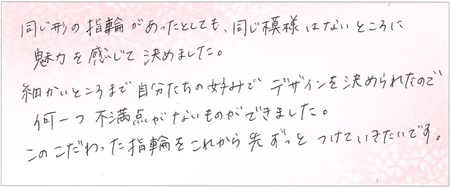 同じ形の指輪があったとしても、同じ模様はないところに
魅力を感じて決めました。
細かいところまで自分たちの好みでデザインを決められたので
何一つ不満点がないものができました。
このこだわった指輪をこれから先ずっとつけていきたいです。